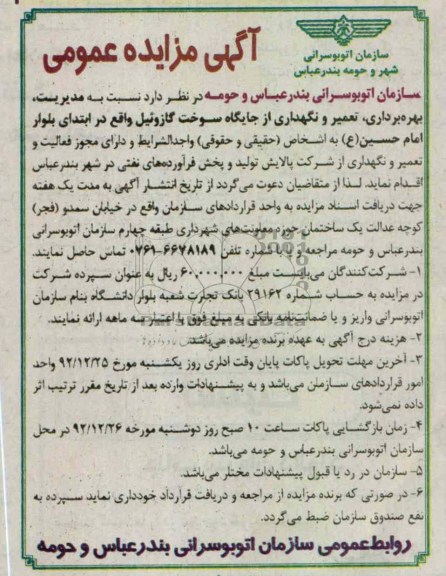 سازمان اتوبوسرانی
شهر و حومه بندرعباس
آگهی مزایده عمومی
سازمان اتوبوسرانی بندرعباس و حومه در نظر دارد نسبت به مدیریت،
بهره‌برداری، تعمیر و نگهداری از جایگاه سوخت گازوئیل واقع در ابتدای بلوار
امام حسین(ع) به اشخاص (حقیقی و حقوقی) واجدالشرایط و دارای مجوز فعالیت و
تعمیر و نگهداری از شرکت پالایش تولید و پخش فرآورده‌های نفتی در شهر بندرعباس
اقدام نماید. لذا از متقاضیان دعوت می‌گردد از تاریخ انتشار آگهی به مدت یک هفته
جهت دریافت اسناد مزایده به واحد قراردادهای سازمان واقع در خیابان سمدو (فجر)
کوچه عدالت یک ساختمان حوزه معاونت‌های شهرداری طبقه چهارم سازمان اتوبوسرانی
بندرعباس و حومه مراجعه و یا شماره تلفن ۶۶۷۸۱۸۹-۰۷۶۱ تماس حاصل نمایند.
۱- شرکت‌کنندگان می‌بایست مبلغ ۶۰,۰۰۰,۰۰۰ ریال به عنوان سپرده شرکت
در مزایده به حساب شماره ۲۹۱۶۲ بانک تجارت شعبه بلوار دانشگاه بنام سازمان
اتوبوسرانی واریز و یا ضمانت‌نامه بانکی به مبلغ فوق با اعتبار سه ماهه ارائه نمایند.
۲- هزینه درج آگهی به عهده برنده مزایده می‌باشد.
۳- آخرین مهلت تحویل پاکات پایان وقت اداری روز یکشنبه مورخ ۹۲/۱۲/۲۵ واحد
امور قراردادهای سازمان می‌باشد و به پیشنهادات وارده بعد از تاریخ مقرر ترتیب اثر
داده نمی‌شود.
۴- زمان بازگشایی پاکات ساعت ۱۰ صبح روز دوشنبه مورخه ۹۲/۱۲/۲۶ در محل
سازمان اتوبوسرانی بندرعباس و حومه می‌باشد.
۵- سازمان در رد یا قبول پیشنهادات مختار می‌باشد.
۶- در صورتی که برنده مزایده از مراجعه و دریافت قرارداد خودداری نماید سپرده به
نفع صندوق سازمان ضبط می‌گردد.
روابط عمومی سازمان اتوبوسرانی بندرعباس و حومه